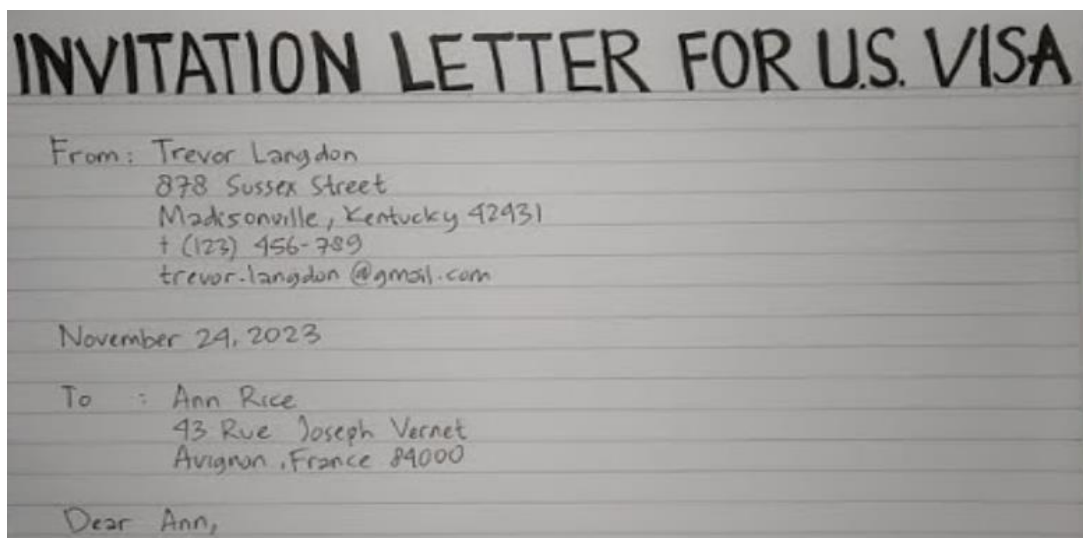 INVITATION LETTER FOR U.S. VISA
From: Trevor Langdon
878 Sussex Street
Madisonville, Kentucky 42431
+ (123) 456-789
trevor.langdon@gmail.com
November 24, 2023
To : Ann Rice
43 Rue Joseph Vernet
Avignon, France 84000
Dear Ann,